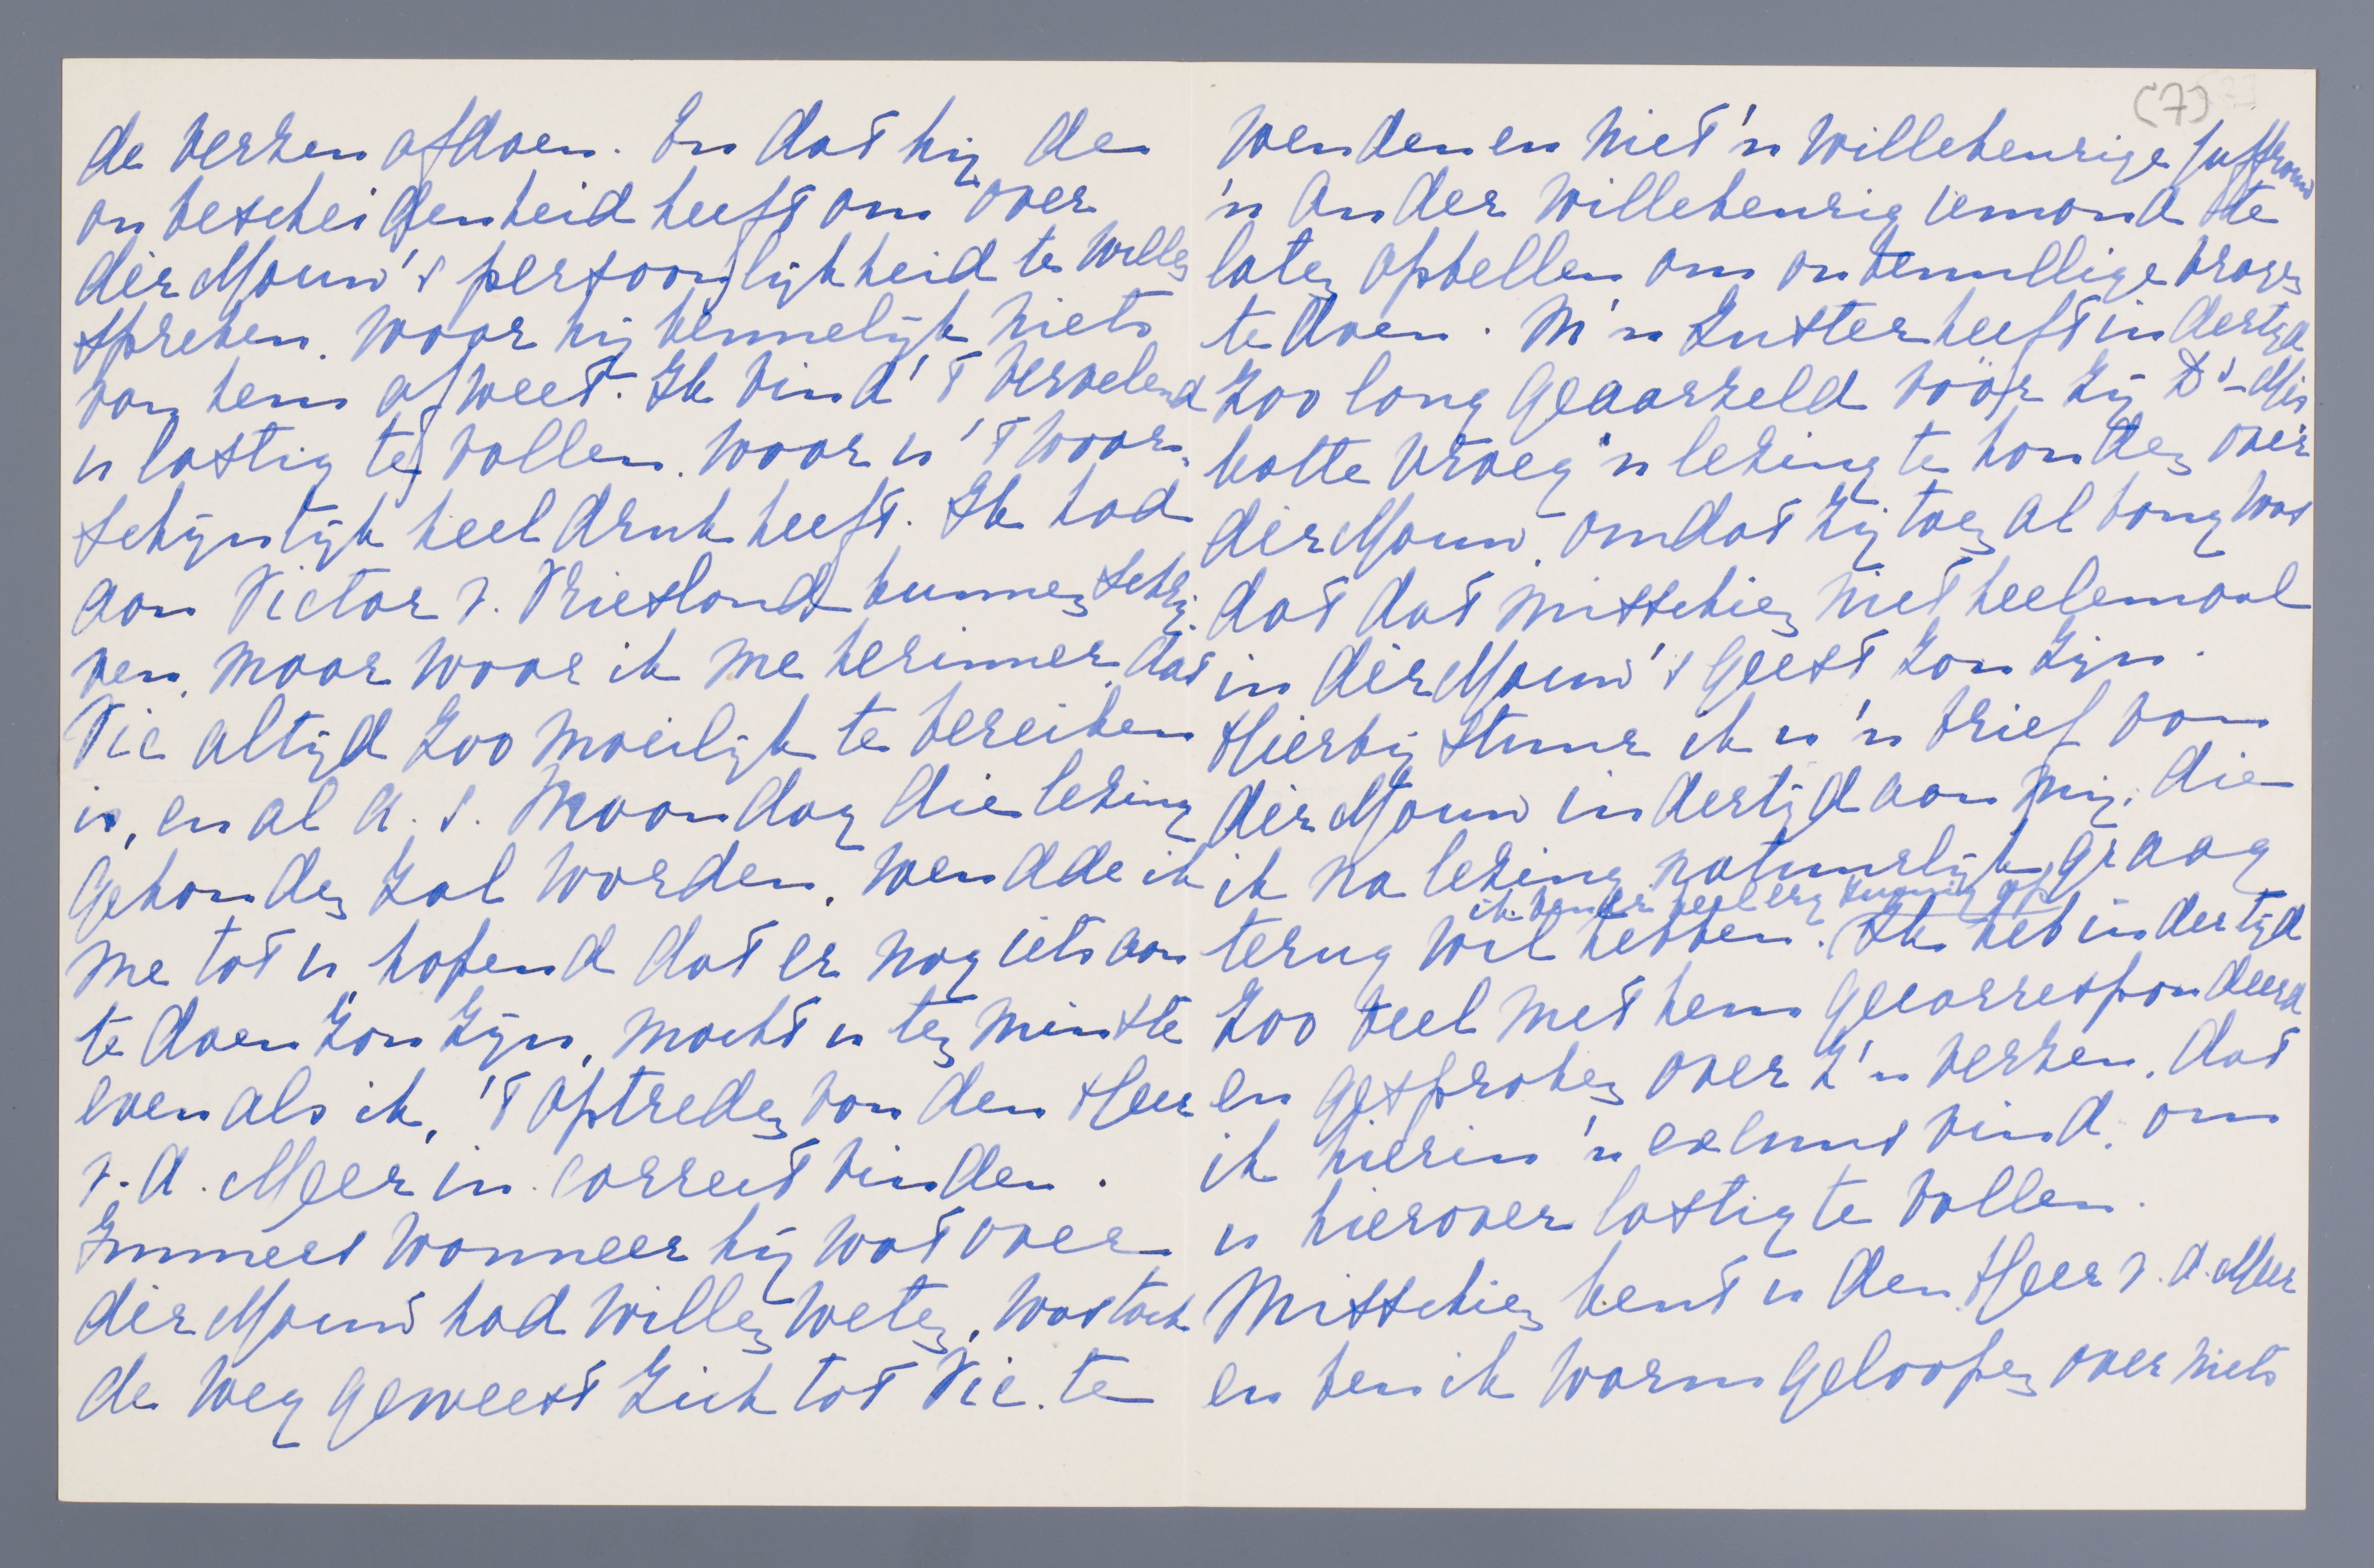 de verzen afdoen. En dat hij de
onbescheidenheid heeft om over
dèr Mouw's persoonlijkheid te willen
spreken, waar hij kennelijk niets
van hem afweet. Ik vind 't vervelend
u lastig te vallen, waar u 't waar-
schijnlijk heel druk heeft. Ik had
aan Victor v. Vriesland kunnen schrij-
ven, maar waar ik me herinner, dat
Vic altijd zoo moeilijk te bereiken
is, en al a. s. Maandag die lezing
gehouden zal worden, wendde ik
me tot u, hopend dat er nog iets aan
te doen zou zijn, mocht u ten minste
even als ik, 't optreden van den Heer
v. d. Meer in correct vinden.
Immers wanneer hij wat over
dèr Mouw had willen weten, was toch
de weg geweest zich tot Vic. te
(7)
wenden en niet 'n willekeurige juffrouw
'n ander willekeurig iemand te
laten opbellen om onbenullige vragen
te doen. M'n zuster heeft indertijd
zoo lang geaarzeld vóór zij Ds Mis
kotte vroeg 'n lezing te houden over
dèr Mouw, omdat zij toen al bang was
dat dat misschien niet heelemaal
in dèr Mouw's geest zou zijn.
Hierbij stuur ik u 'n brief van
dèr Mouw indertijd aan mij, die
ik na lezing natuurlijk graag
ik ben er heel erg zuinig op
terug wil hebben. Ik heb indertijd
zoo veel met hem gecorrespondeerd
en gesproken over z'n verzen, dat
ik hierin 'n excuus vind, om
u hierover lastig te vallen.
Misschien kent u den Heer v. d. Meer
en ben ik warm geloopen over niets